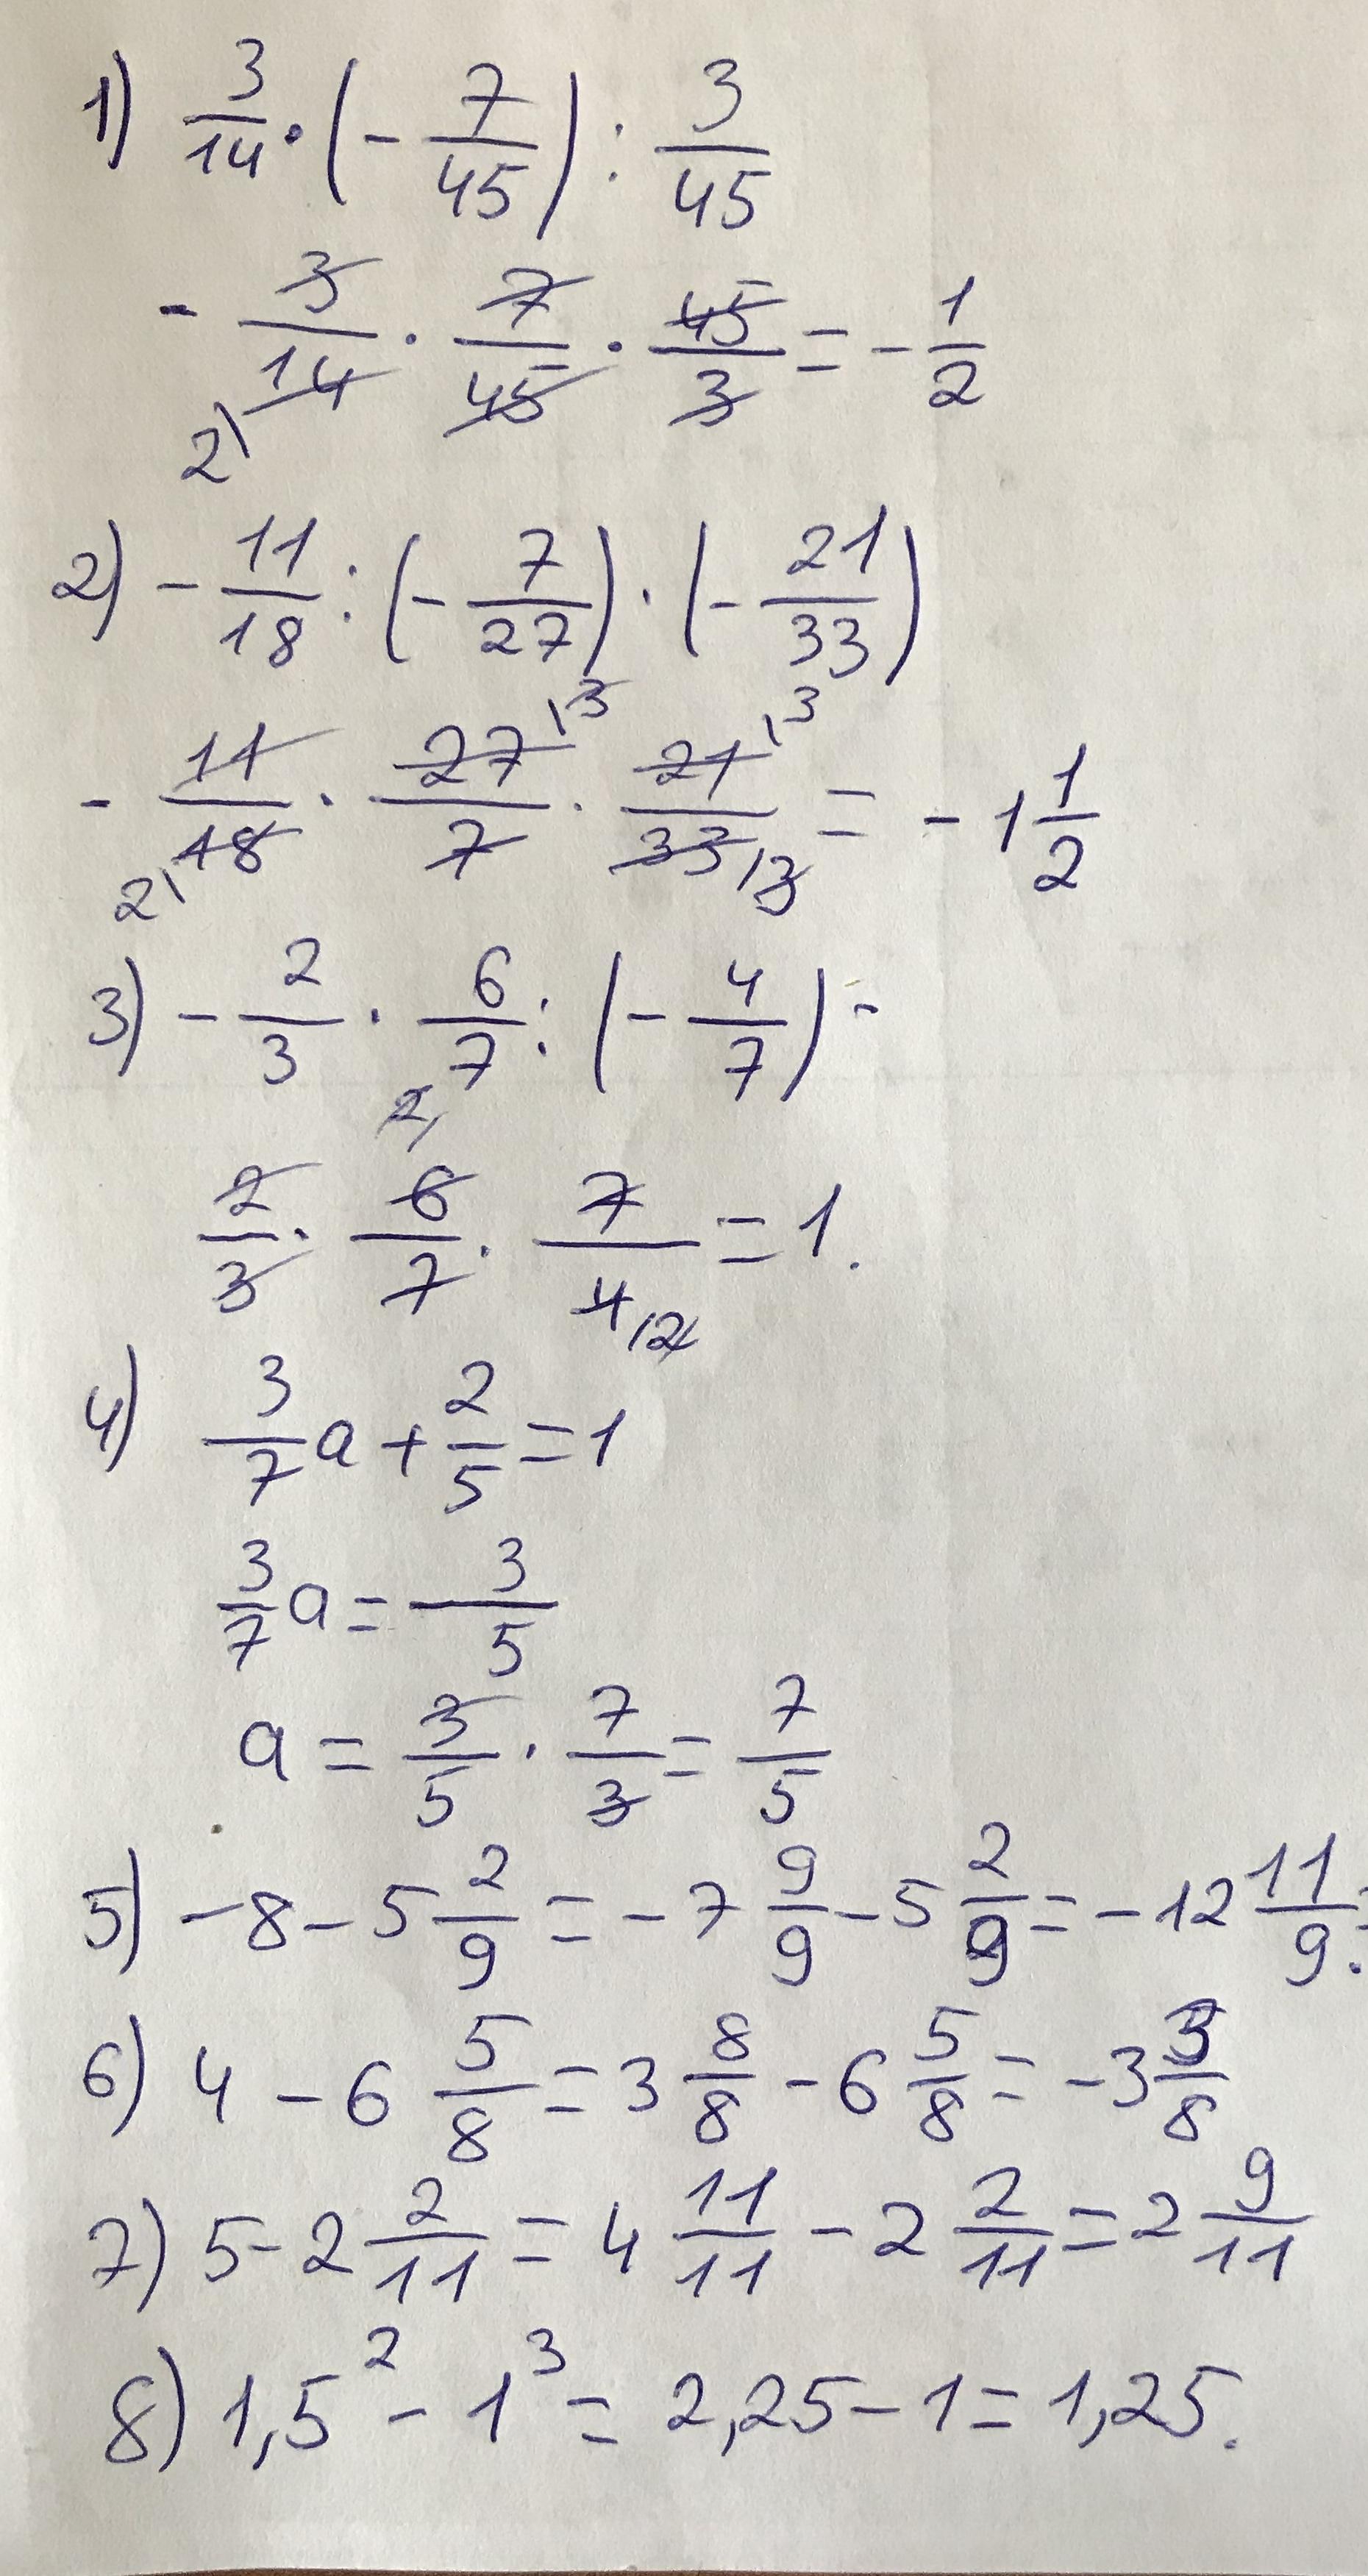 1) 3/14 · (- 7/45) : 3/45
- 3/14 · 7/45 · 45/3 = - 1/2
2)
2) - 11/18 : (- 7/27) · (- 21/33)
3 3
- 11/18 · 27/7 · 21/33 = - 1 1/2
2 3
3) - 2/3 · 6/7 : (- 4/7) -
2
2/3 · 6/7 · 7/4 = 1.
2
4) 3/7 a + 2/5 = 1
3/7 a = 3/5
a = 3/5 · 7/3 = 7/5
5) -8 - 5 2/9 = - 7 9/9 - 5 2/9 = - 12 11/9 =
6) 4 - 6 5/8 = 3 8/8 - 6 5/8 = - 3 3/8
7) 5 - 2 2/11 = 4 11/11 - 2 2/11 = 2 9/11
8) 1,5² - 1³ = 2,25 - 1 = 1,25.